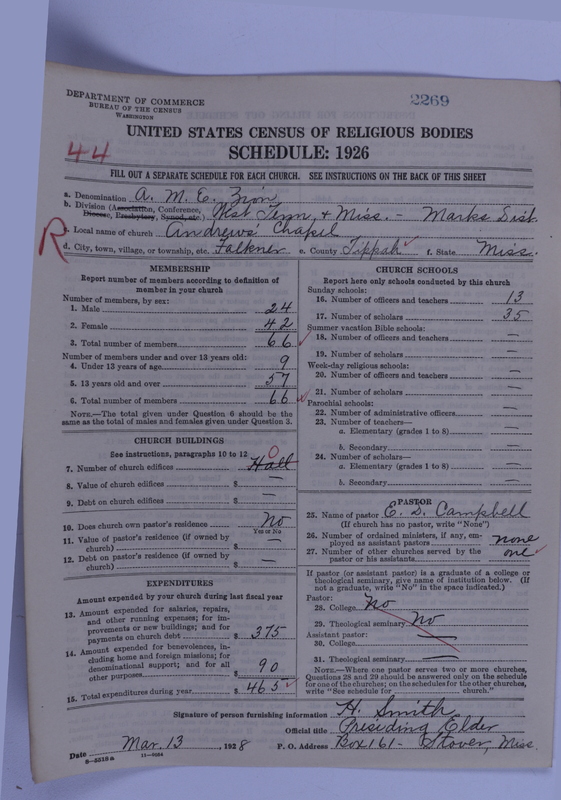 DEPARTMENT OF COMMERCE
BUREAU OF THE CENSUS
WASHINGTON
2269
UNITED STATES CENSUS OF RELIGIOUS BODIES
SCHEDULE: 1926
44
FILL OUT A SEPARATE SCHEDULE FOR EACH CHURCH. SEE INSTRUCTIONS ON THE BACK OF THIS SHEET
a. Denomination A. M. E. Zion
b. Division (Association, Conference, Diocese, Presbytery, Synod, etc.) West Tenn, & Miss. - Marks Dist.
R
c. Local name of church Andrews' Chapel
d. City, town, village, or township, etc. Falkner e. County Tippah f. State Miss.
MEMBERSHIP
Report number of members according to definition of
member in your church
Number of members, by sex:
1. Male 24
2. Female 42
3. Total number of members 66
Number of members under and over 13 years old:
4. Under 13 years of age 9
5. 13 years old and over 57
6. Total number of members 66
NOTE.—The total given under Question 6 should be the
same as the total of males and females given under Question 3.
CHURCH BUILDINGS
See instructions, paragraphs 10 to 12
7. Number of church edifices Hall 0
8. Value of church edifices $ —
9. Debt on church edifices $ —
10. Does church own pastor's residence No
Yes or No
11. Value of pastor's residence (if owned by
church) $ —
12. Debt on pastor's residence (if owned by
church) $ —
EXPENDITURES
Amount expended by your church during last fiscal year
13. Amount expended for salaries, repairs,
and other running expenses; for im-
provements or new buildings; and for
payments on church debt $ 375
14. Amount expended for benevolences, in-
cluding home and foreign missions; for
denominational support; and for all
other purposes $ 90
15. Total expenditures during year $ 465
CHURCH SCHOOLS
Report here only schools conducted by this church
Sunday schools:
16. Number of officers and teachers 13
17. Number of scholars 35
Summer vacation Bible schools:
18. Number of officers and teachers —
19. Number of scholars —
Week-day religious schools:
20. Number of officers and teachers —
21. Number of scholars —
Parochial schools:
22. Number of administrative officers —
23. Number of teachers—
a. Elementary (grades 1 to 8) —
b. Secondary —
24. Number of scholars—
a. Elementary (grades 1 to 8) —
b. Secondary —
PASTOR
25. Name of pastor E. D. Campbell
(If church has no pastor, write "None")
26. Number of ordained ministers, if any, em-
ployed as assistant pastors none
27. Number of other churches served by the
pastor or his assistants one
If pastor (or assistant pastor) is a graduate of a college or
theological seminary, give name of institution below. (If
not a graduate, write "No" in the space indicated.)
Pastor:
28. College No
29. Theological seminary No
Assistant pastor:
30. College —
31. Theological seminary —
NOTE.—Where one pastor serves two or more churches,
Questions 28 and 29 should be answered only on the schedule
for one of the churches; on the schedules for the other churches,
write "See schedule for church."
Signature of person furnishing information H. Smith
Official title Presiding Elder
Date Mar. 13, 1928 P. O. Address Box 161 - Stover, Miss.
8—5518a 11—9094